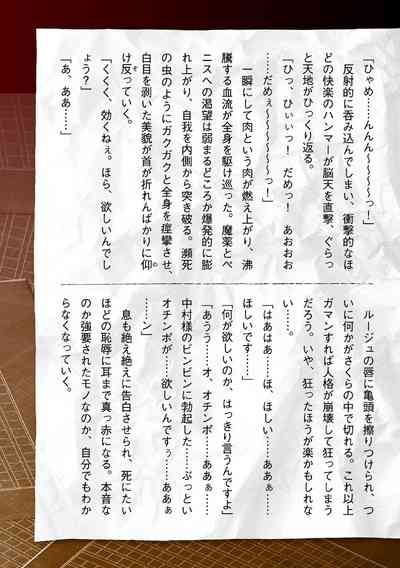 「ひゃめ……んんん～～～～～っ！」
　反射的に呑み込んでしまい、衝撃的なほ
どの快楽のハンマーが脳天を直撃、ぐらっ
と天地がひっくり返る。
「ひっ、ひぃぃっ！　だめっ！　あおおお
……だめぇ～～～～～～っ！」
　一瞬にして肉という肉が燃え上がり、沸
騰する血流が全身を駆け巡った。魔薬とペ
ニスへの渇望は弱まるどころか爆発的に膨
れ上がり、自我を内側から突き破る。瀕死
の虫のようにガクガクと全身を痙攣させ、
白目を剥いた美貌が首が折れんばかりに仰
け反っていく。
「くくく、効くねぇ。ほら、欲しいんでし
ょう？」
「あ、ああ……」
　ルージュの唇に亀頭を擦りつけられ、つ
いに何かがさくらの中で切れる。これ以上
ガマンすれば人格が崩壊して狂ってしまう
だろう。いや、狂ったほうが楽かもしれな
い……。
「はあはあ……ほ、ほしい……ああぁ……
ほしいです……」
「何が欲しいのか、はっきり言うんですよ」
「あうう……オ、オチンポ……ああぁ……
中村様のビンビンに勃起した……ぶっとい
オチンポが……欲しいんですぅ……ああぁ
……ン」
　息も絶え絶えに告白させられ、死にたい
ほどの恥辱に耳まで真っ赤になる。本音な
のか強要されたモノなのか、自分でもわか
らなくなっていく。